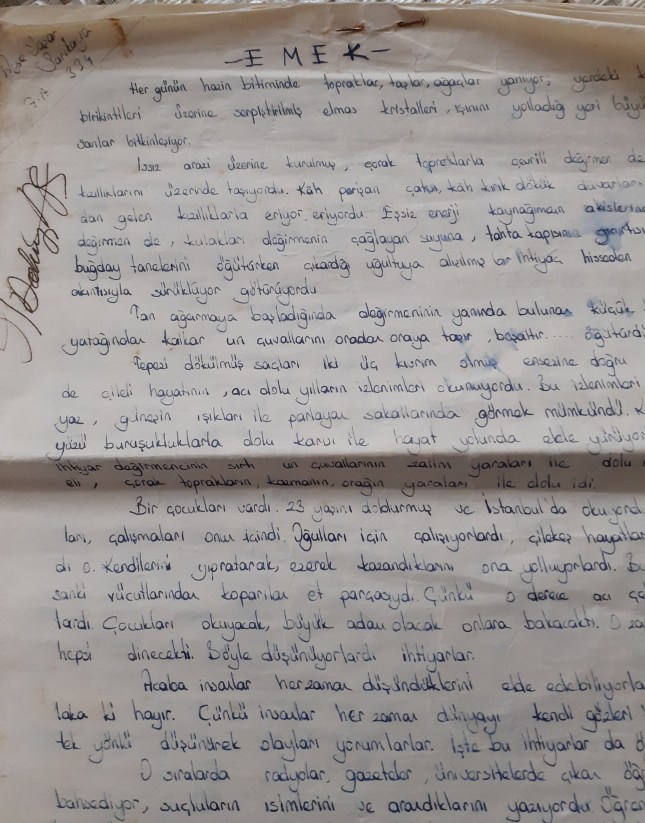 - E M E K -
Her günün hazin bitiminde topraklar, taşlar, ağaçlar yanıyor, yerdeki
birikintileri üzerine serpiştirilmiş elmas kristalleri, ışınını yolladığı yeri büyü
sarılar bitkinleşiyor.
Issız arazi üzerine kurulmuş, çorak topraklarla çevrili değirmen de
kızıllıklarını üzerinde taşıyordu. Kâh perişan çatın, kâh kırık dökük duvarlar.
dan gelen kızıllıklarla eriyor, eriyordu. Eşsiz enerji kaynağımın akislerine
değirmen de, kulakları değirmenin çağlayan suyuna, tahta kapısının
buğday tanelerini öğütürken çıkardığı uğultuya alışılmış bir ihtiyaç hisseden
akıntısıyla sürüklüyor götürüyordu
Tan ağarmaya başladığında değirmeninin yanında bulunan küçük
yatağından kalkar un çuvallarını oradan oraya taşır, boşaltır..... öğütürdü
Tepesi dökülmüş saçları iki üç kısım olmuş ensesine doğru
de çileli hayatının, acı dolu yılların izlenimleri okunuyordu. Bu izlenimleri
yaz, güneşin ışıkları ile parlayan sakallarında görmek mümkündü. K
yüzü buruşukluklarla dolu karısı ile hayat yolunda elde yürüyor
ihtiyar değirmencinin sırtı un çuvallarının zalim yaraları ile dolu
eli, çorak toprakların, kazmanın, orağın yaraları ile dolu idi.
Bir çocukları vardı. 23 yaşını doldurmuş ve İstanbul'da okuyordu
ları, çalışmaları onun içindi. Oğulları için çalışıyorlardı, çilekeş hayatlar
dı o. Kendilerini yıpratarak, ezerek kazandıklarını ona yolluyorlardı. Bu
sanki vücutlarından koparılan et parçasıydı. Çünkü o derece acı çe
lardı. Çocukları okuyacak, büyük adam olacak onlara bakacaktı. O za
hepsi dinecekti. Böyle düşünüyorlardı ihtiyarlar.
Acaba insanlar her zaman düşündüklerini elde edebiliyorla
laka ki hayır. Çünkü insanlar her zaman dünyayı kendi gözleri
tek yönlü düşünerek olayları yorumlarlar. İşte bu ihtiyarlar da ö
O sıralarda radyolar, gazeteler, üniversitelerde çıkan öğ
bahsediyor, suçluların isimlerini ve arandıklarını yazıyordu. Öğren